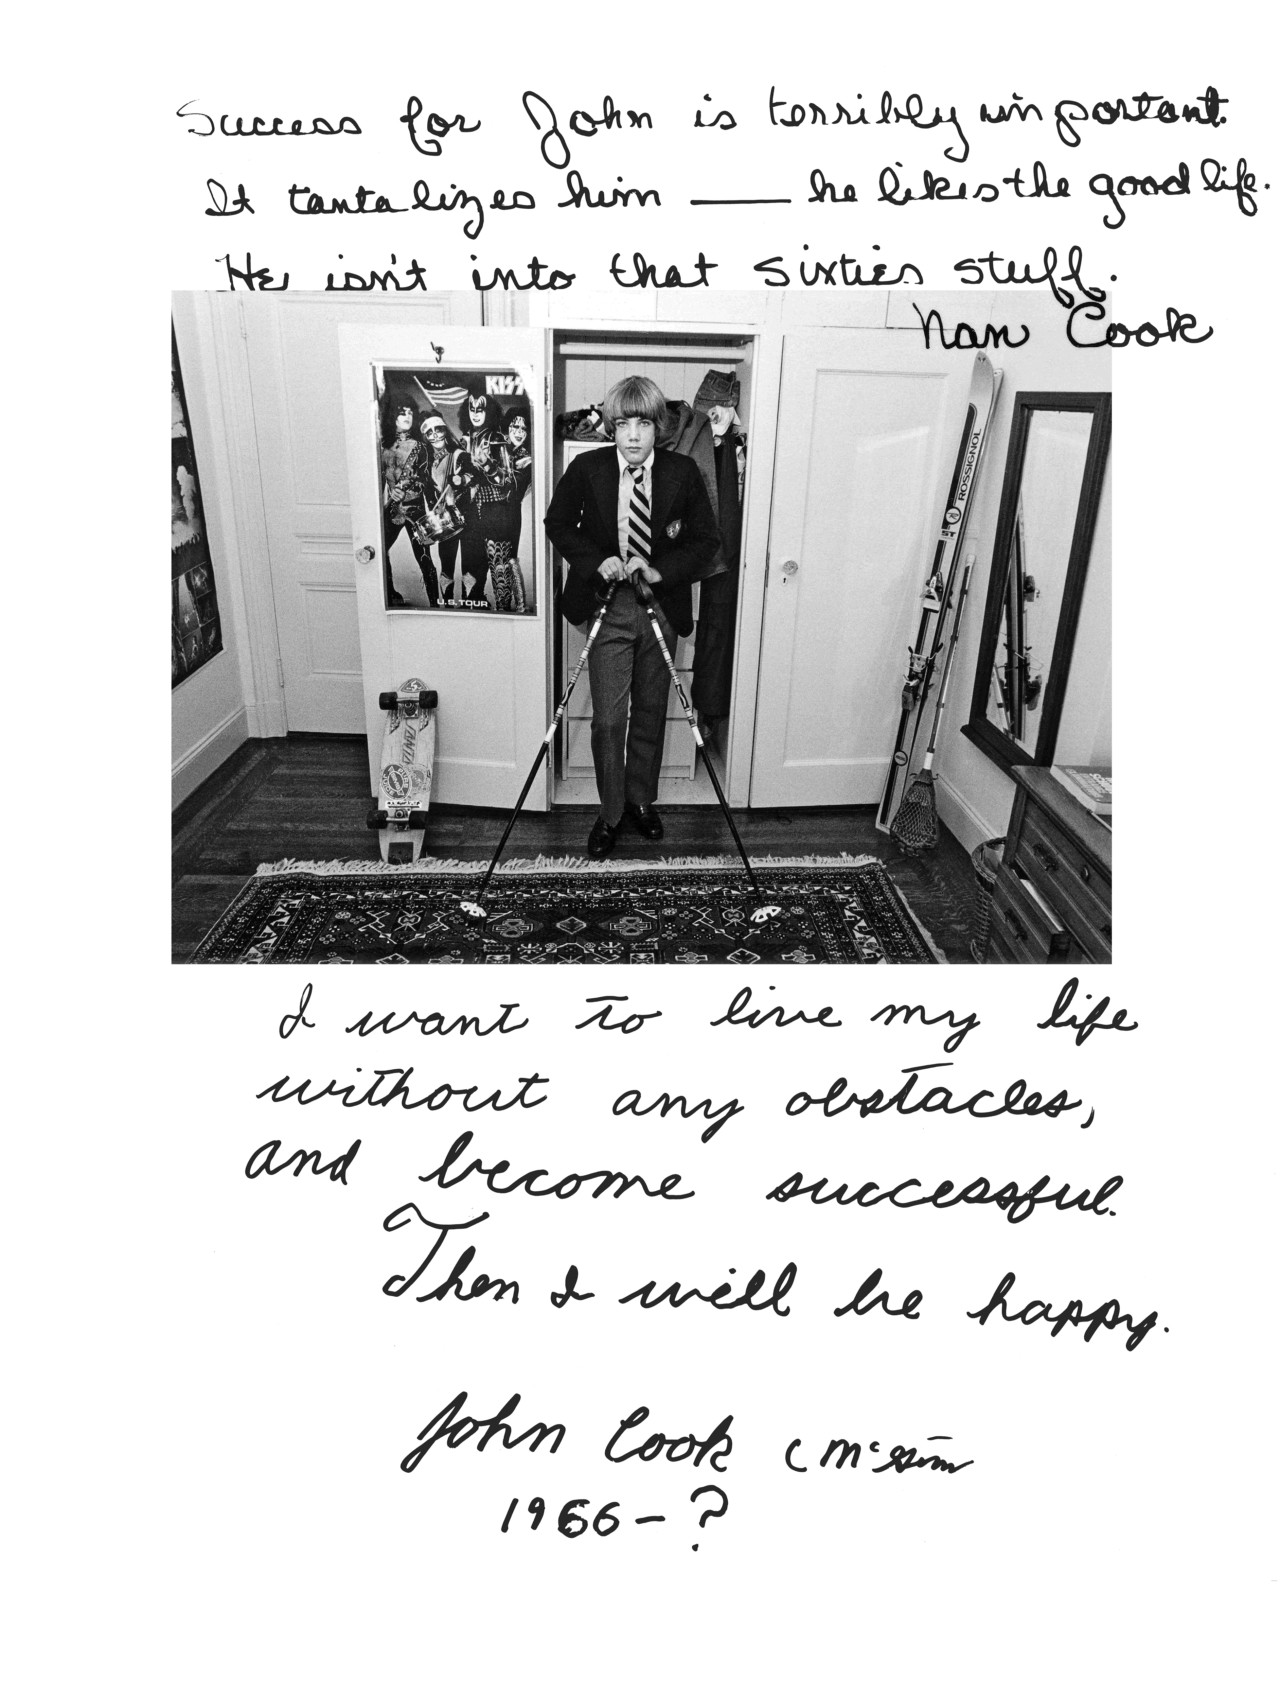 Success for John is terribly important.
It tantalizes him — he likes the good life.
He isn't into that sixties stuff.
Nan Cook
KISS
U.S. TOUR
ROSSIGNOL
ST
I want to live my life
without any obstacles,
and become successful.
Then I will be happy.
John Cook
1966-?